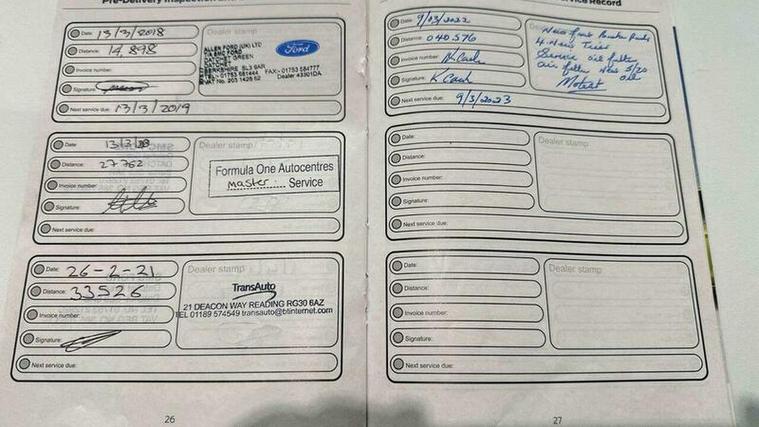 Pre-Delivery Inspection
Date: 13/3/2018
Distance: 14,898
Invoice number:
Signature:
Next service due: 13/3/2019
Dealer stamp
ALLEN FORD (UK) LTD
DATCHET GREEN
DATCHET
BERKSHIRE SL3 9AR
TEL:- 01753 581444 FAX:- 01753 584777
VAT No. 203 1428 62 Dealer 43301DA
Ford
Date: 13/3/20
Distance: 27762
Invoice number:
Signature:
Next service due:
Dealer stamp
Formula One Autocentres
master Service
Date: 26-2-21
Distance: 33526
Invoice number:
Signature:
Next service due:
Dealer stamp
TransAuto
21 DEACON WAY READING RG30 6AZ
TEL 01189 574549 transauto@btinternet.com
26
Service Record
Date: 9/03/2022
Distance: 040576
Invoice number: K Cash
Signature: K Cash
Next service due: 9/3/2023
New front
4 New
Service oil filter
air filter New 5/20
oil
Date:
Distance:
Invoice number:
Signature:
Next service due:
Dealer stamp
Date:
Distance:
Invoice number:
Signature:
Next service due:
Dealer stamp
27